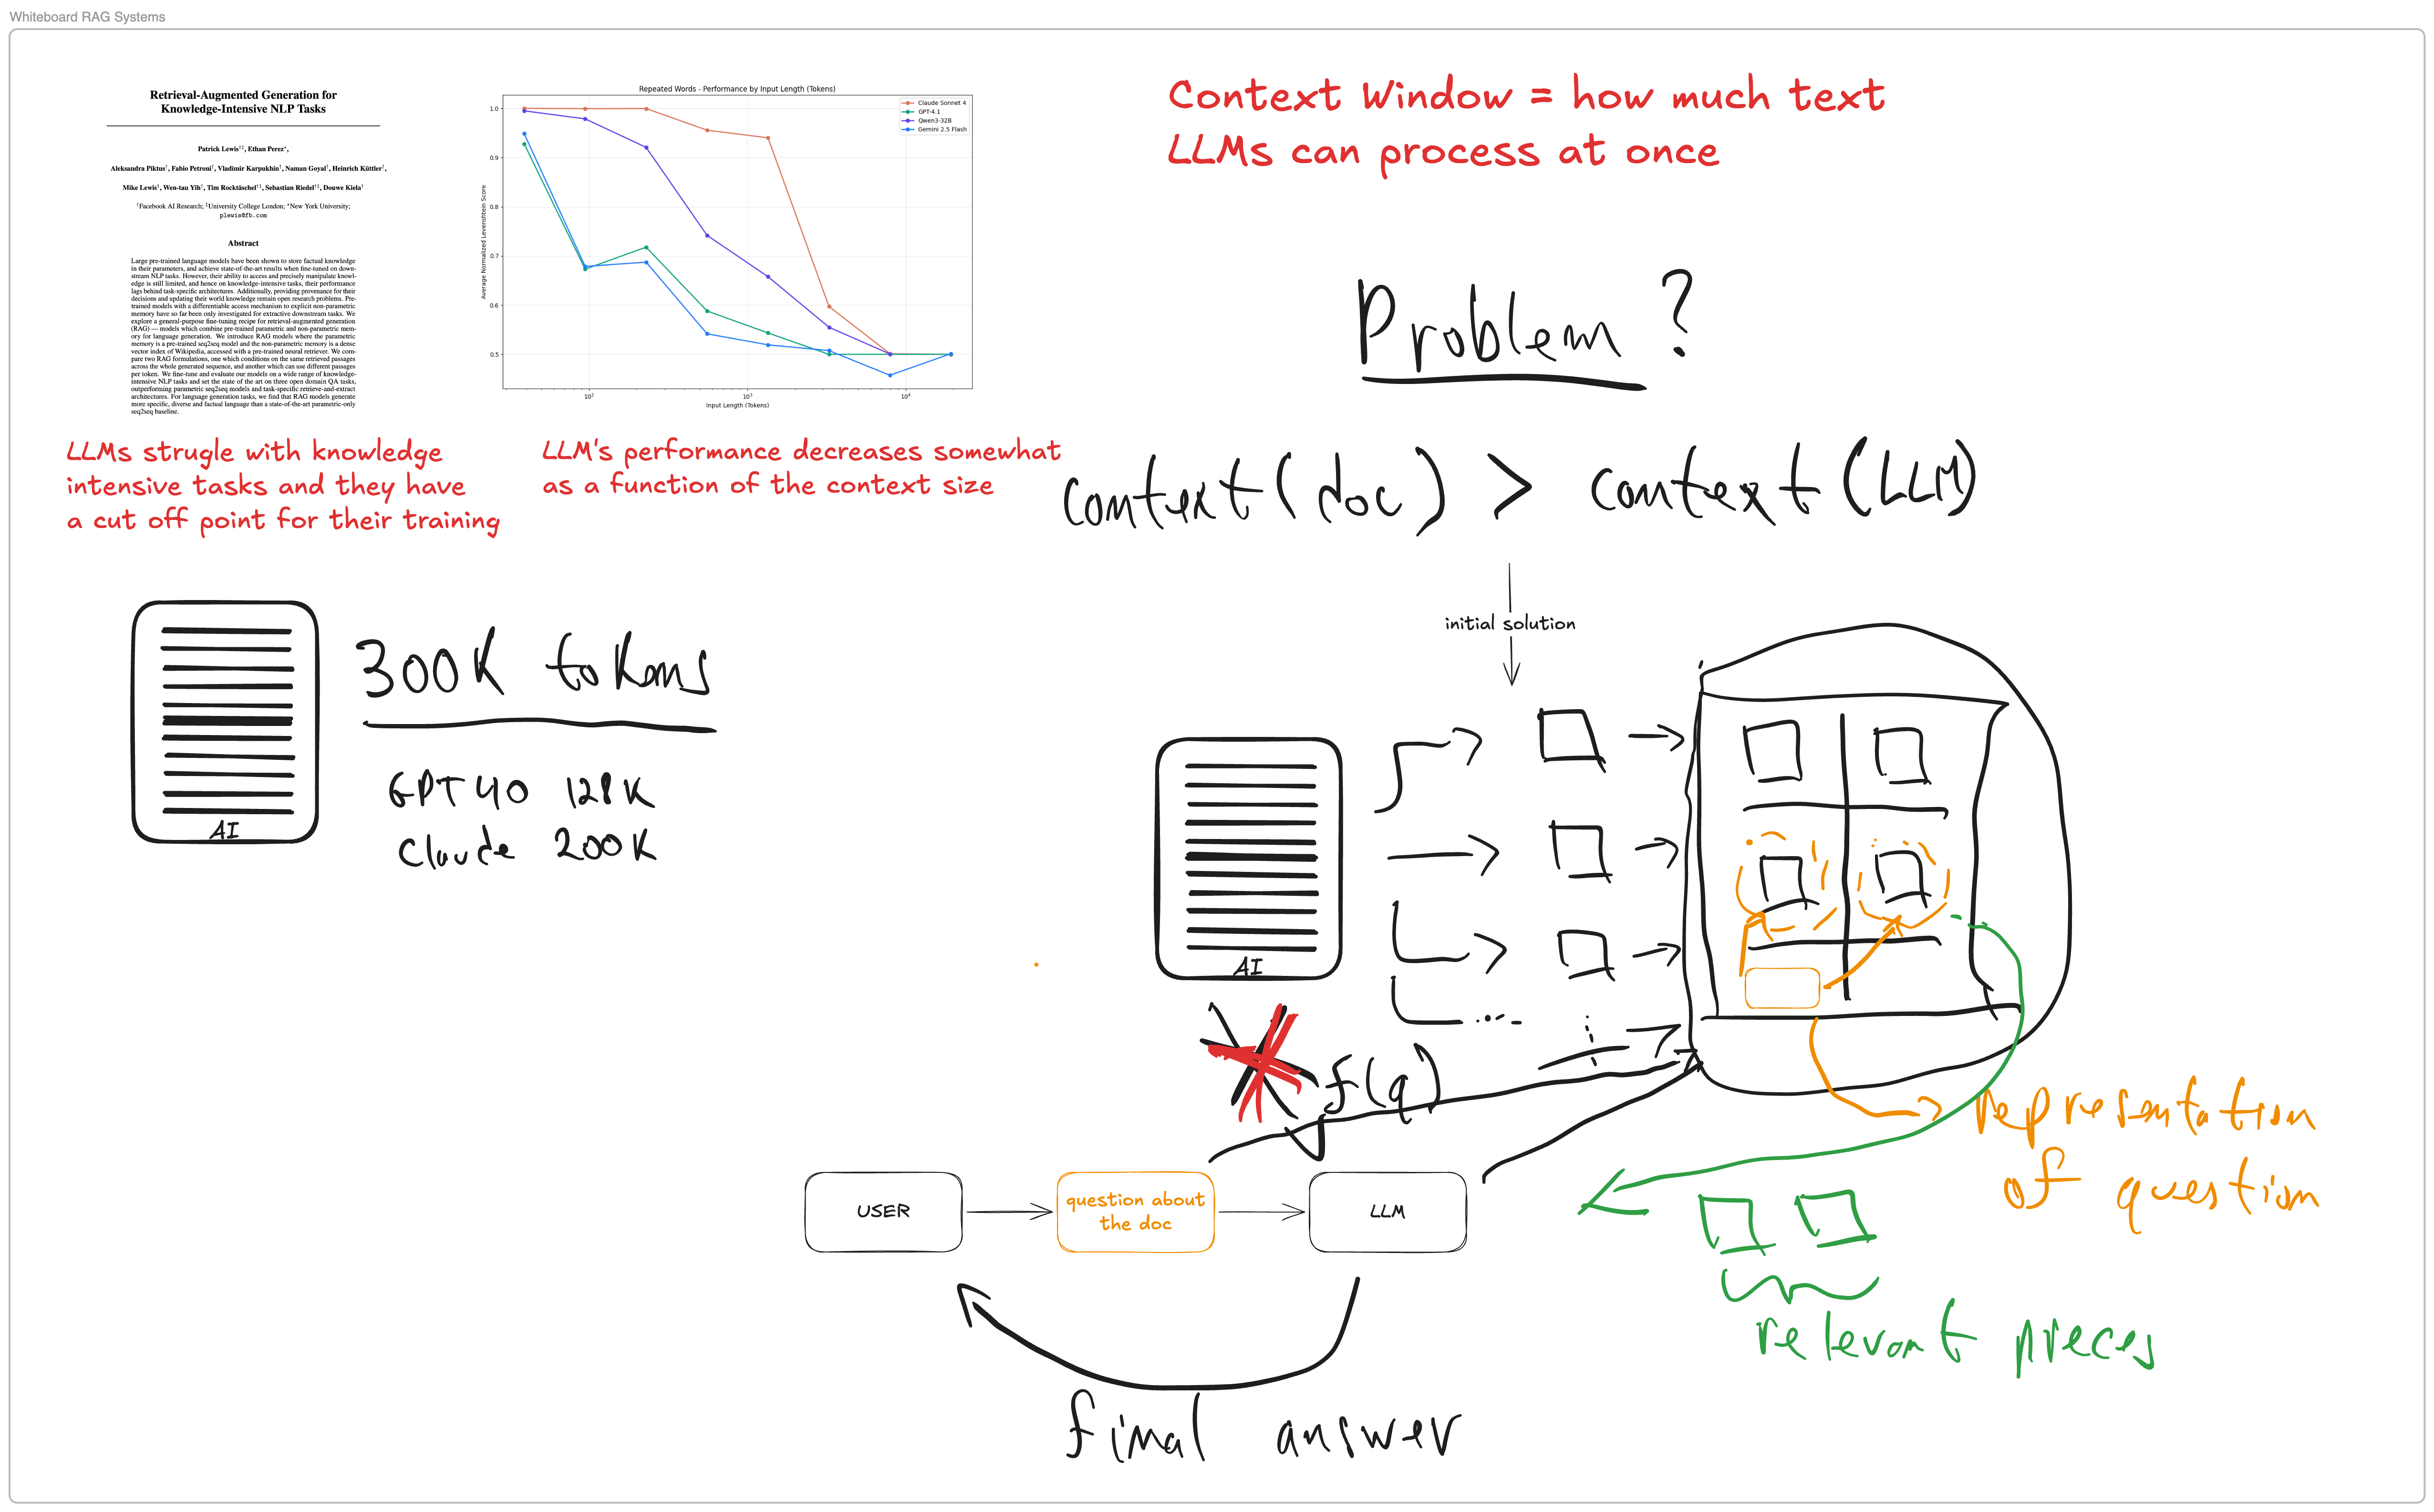 Whiteboard RAG Systems
Retrieval-Augmented Generation for
Knowledge-Intensive NLP Tasks
Patrick Lewis†‡, Ethan Perez⋆,
Aleksandra Piktus†, Fabio Petroni†, Vladimir Karpukhin†, Naman Goyal†, Heinrich Küttler†,
Mike Lewis†, Wen-tau Yih†, Tim Rocktäschel†‡, Sebastian Riedel†‡, Douwe Kiela†
†Facebook AI Research; ‡University College London; ⋆New York University;
plewis@fb.com
Abstract
Large pre-trained language models have been shown to store factual knowledge
in their parameters, and achieve state-of-the-art results when fine-tuned on down-
stream NLP tasks. However, their ability to access and precisely manipulate knowl-
edge is still limited, and hence on knowledge-intensive tasks, their performance
lags behind task-specific architectures. Additionally, providing provenance for their
decisions and updating their world knowledge remain open research problems. Pre-
trained models with a differentiable access mechanism to explicit non-parametric
memory have so far been only investigated for extractive downstream tasks. We
explore a general-purpose fine-tuning recipe for retrieval-augmented generation
(RAG) — models which combine pre-trained parametric and non-parametric mem-
ory for language generation. We introduce RAG models where the parametric
memory is a pre-trained seq2seq model and the non-parametric memory is a dense
vector index of Wikipedia, accessed with a pre-trained neural retriever. We com-
pare two RAG formulations, one which conditions on the same retrieved passages
across the whole generated sequence, and another which can use different passages
per token. We fine-tune and evaluate our models on a wide range of knowledge-
intensive NLP tasks and set the state of the art on three open domain QA tasks,
outperforming parametric seq2seq models and task-specific retrieve-and-extract
architectures. For language generation tasks, we find that RAG models generate
more specific, diverse and factual language than a state-of-the-art parametric-only
seq2seq baseline.
Repeated Words - Performance by Input Length (Tokens)
Claude Sonnet 4
GPT-4.1
Qwen3-32B
Gemini 2.5 Flash
Average Normalized Levenshtein Score
1.0
0.9
0.8
0.7
0.6
0.5
10²
10³
10⁴
Input Length (Tokens)
LLMs strugle with knowledge
intensive tasks and they have
a cut off point for their training
LLM's performance decreases somewhat
as a function of the context size
Context Window = how much text
LLMs can process at once
Problem ?
context (doc) > context (LLM)
initial solution
AI
300K tokens
GPT 4O 128K
Claude 200K
AI
f(q)
USER
question about
the doc
LLM
representation
of question
relevant pieces
final answer